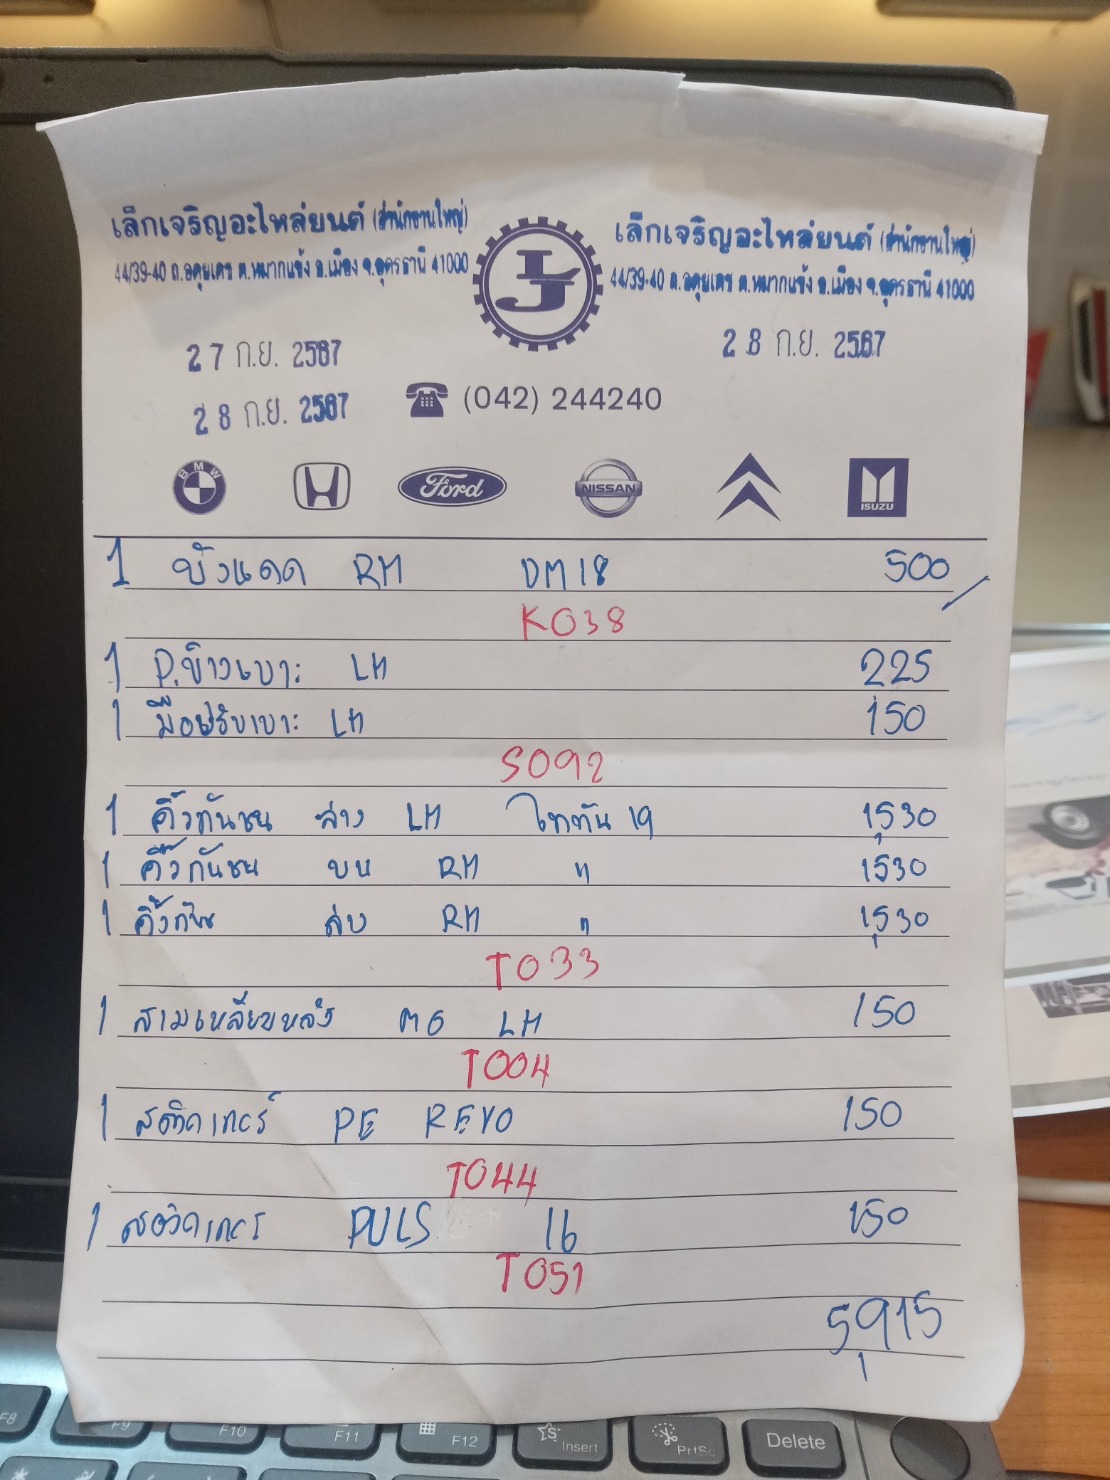 เล็กเจริญอะไหล่ยนต์ (สำนักงานใหญ่)
44/39-40 ถ.อดุยเดช ต.หมากแข้ง อ.เมือง จ.อุดรธานี 41000
เล็กเจริญอะไหล่ยนต์ (สำนักงานใหญ่)
44/39-40 ถ.อดุยเดช ต.หมากแข้ง อ.เมือง จ.อุดรธานี 41000
LJ
27 ก.ย. 2567
28 ก.ย. 2567
28 ก.ย. 2567
(042) 244240
BMW Ford NISSAN ISUZU
1 บังแดด RH DM18 500
K038
1 P.ข้างเบาะ LH 225
1 มือปรับเบาะ LH 150
S092
1 คิ้วกันชน ล่าง LH ไททัน 19 1,530
1 คิ้วกันชน บน RH " 1,530
1 คิ้วกัน ล่าง RH " 1,530
T033
1 สามเหลี่ยมหลัง MG LH 150
T004
1 สติกเกอร์ PE REVO 150
T044
1 สติกเกอร์ PULS 16 150
T051
5,915
F8 F9 F10 F11 F12 Insert PrtSc Delete